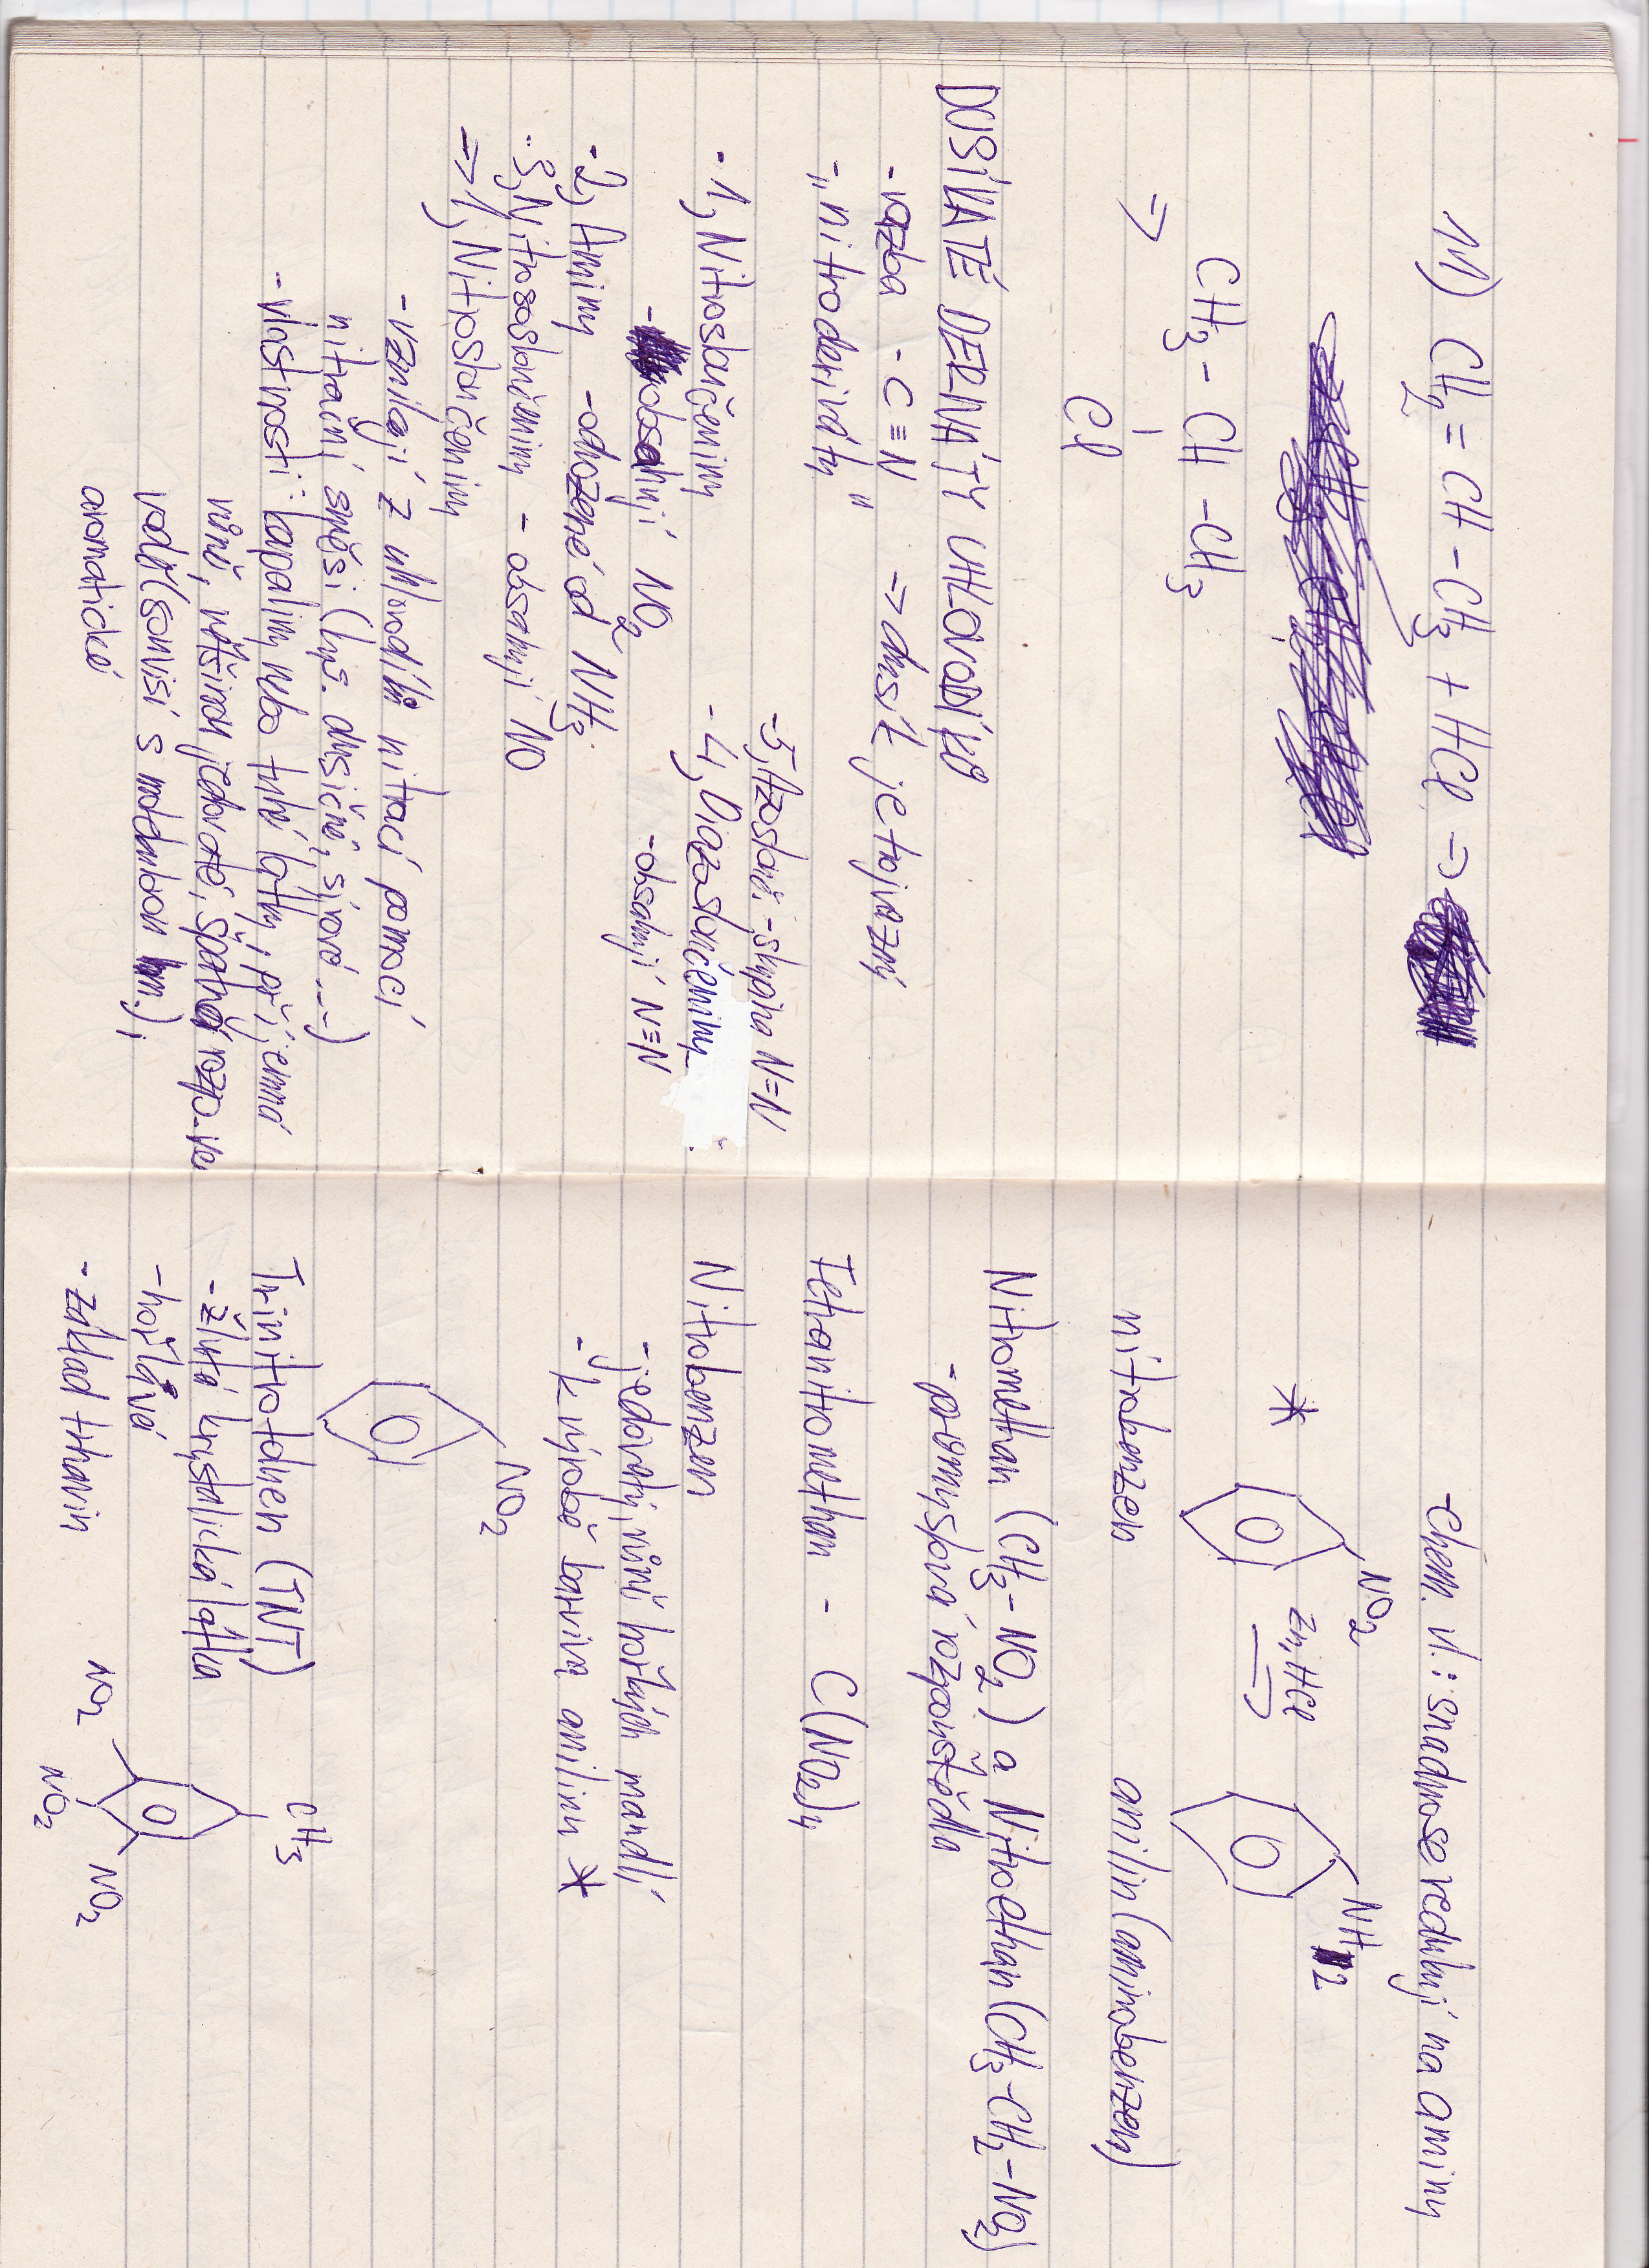 11) CH2 = CH - CH3 + HCl =>
=> CH3 - CH - CH3
Cl
DUSÍKATÉ DERIVÁTY UHLOVODÍKŮ
- vazba - C ≡ N => dusík je trojvazný
- „nitroderiváty"
- 5, Azoslouč. - skupina N=N
- 1, Nitrosloučeniny - 4, Diazosloučeniny
- obsahují NO2 - obsahují N≡N
- 2, Aminy - odvozené od NH3
- 3, Nitrososloučeniny - obsahují NO
=> 1, Nitrosloučeniny
- vznikají z uhlovodíků nitrací pomocí
nitrační směsi (kys. dusičné, sírové ....)
- vlastnosti: kapaliny nebo tuhé látky, příjemná
vůně, většinou jedovaté, špatná rozp. ve
vodě (souvisí s molekulovou hm.),
aromatické
- chem. vl.: snadno se redukují na aminy
* NO2 Zn, HCl => NH2
nitrobenzen anilin (aminobenzen)
Nitromethan (CH3 - NO2) a Nitroethan (CH3-CH2-NO2)
- průmyslová rozpouštědla
Tetranitromethan - C(NO2)4
Nitrobenzen
- jedovatý, vůně hořkých mandlí
- k výrobě barviva anilinu *
NO2
Trinitrotoluen (TNT)
- žlutá krystalická látka
- hořlavá
- základ trhavin
CH3
NO2 NO2
NO2